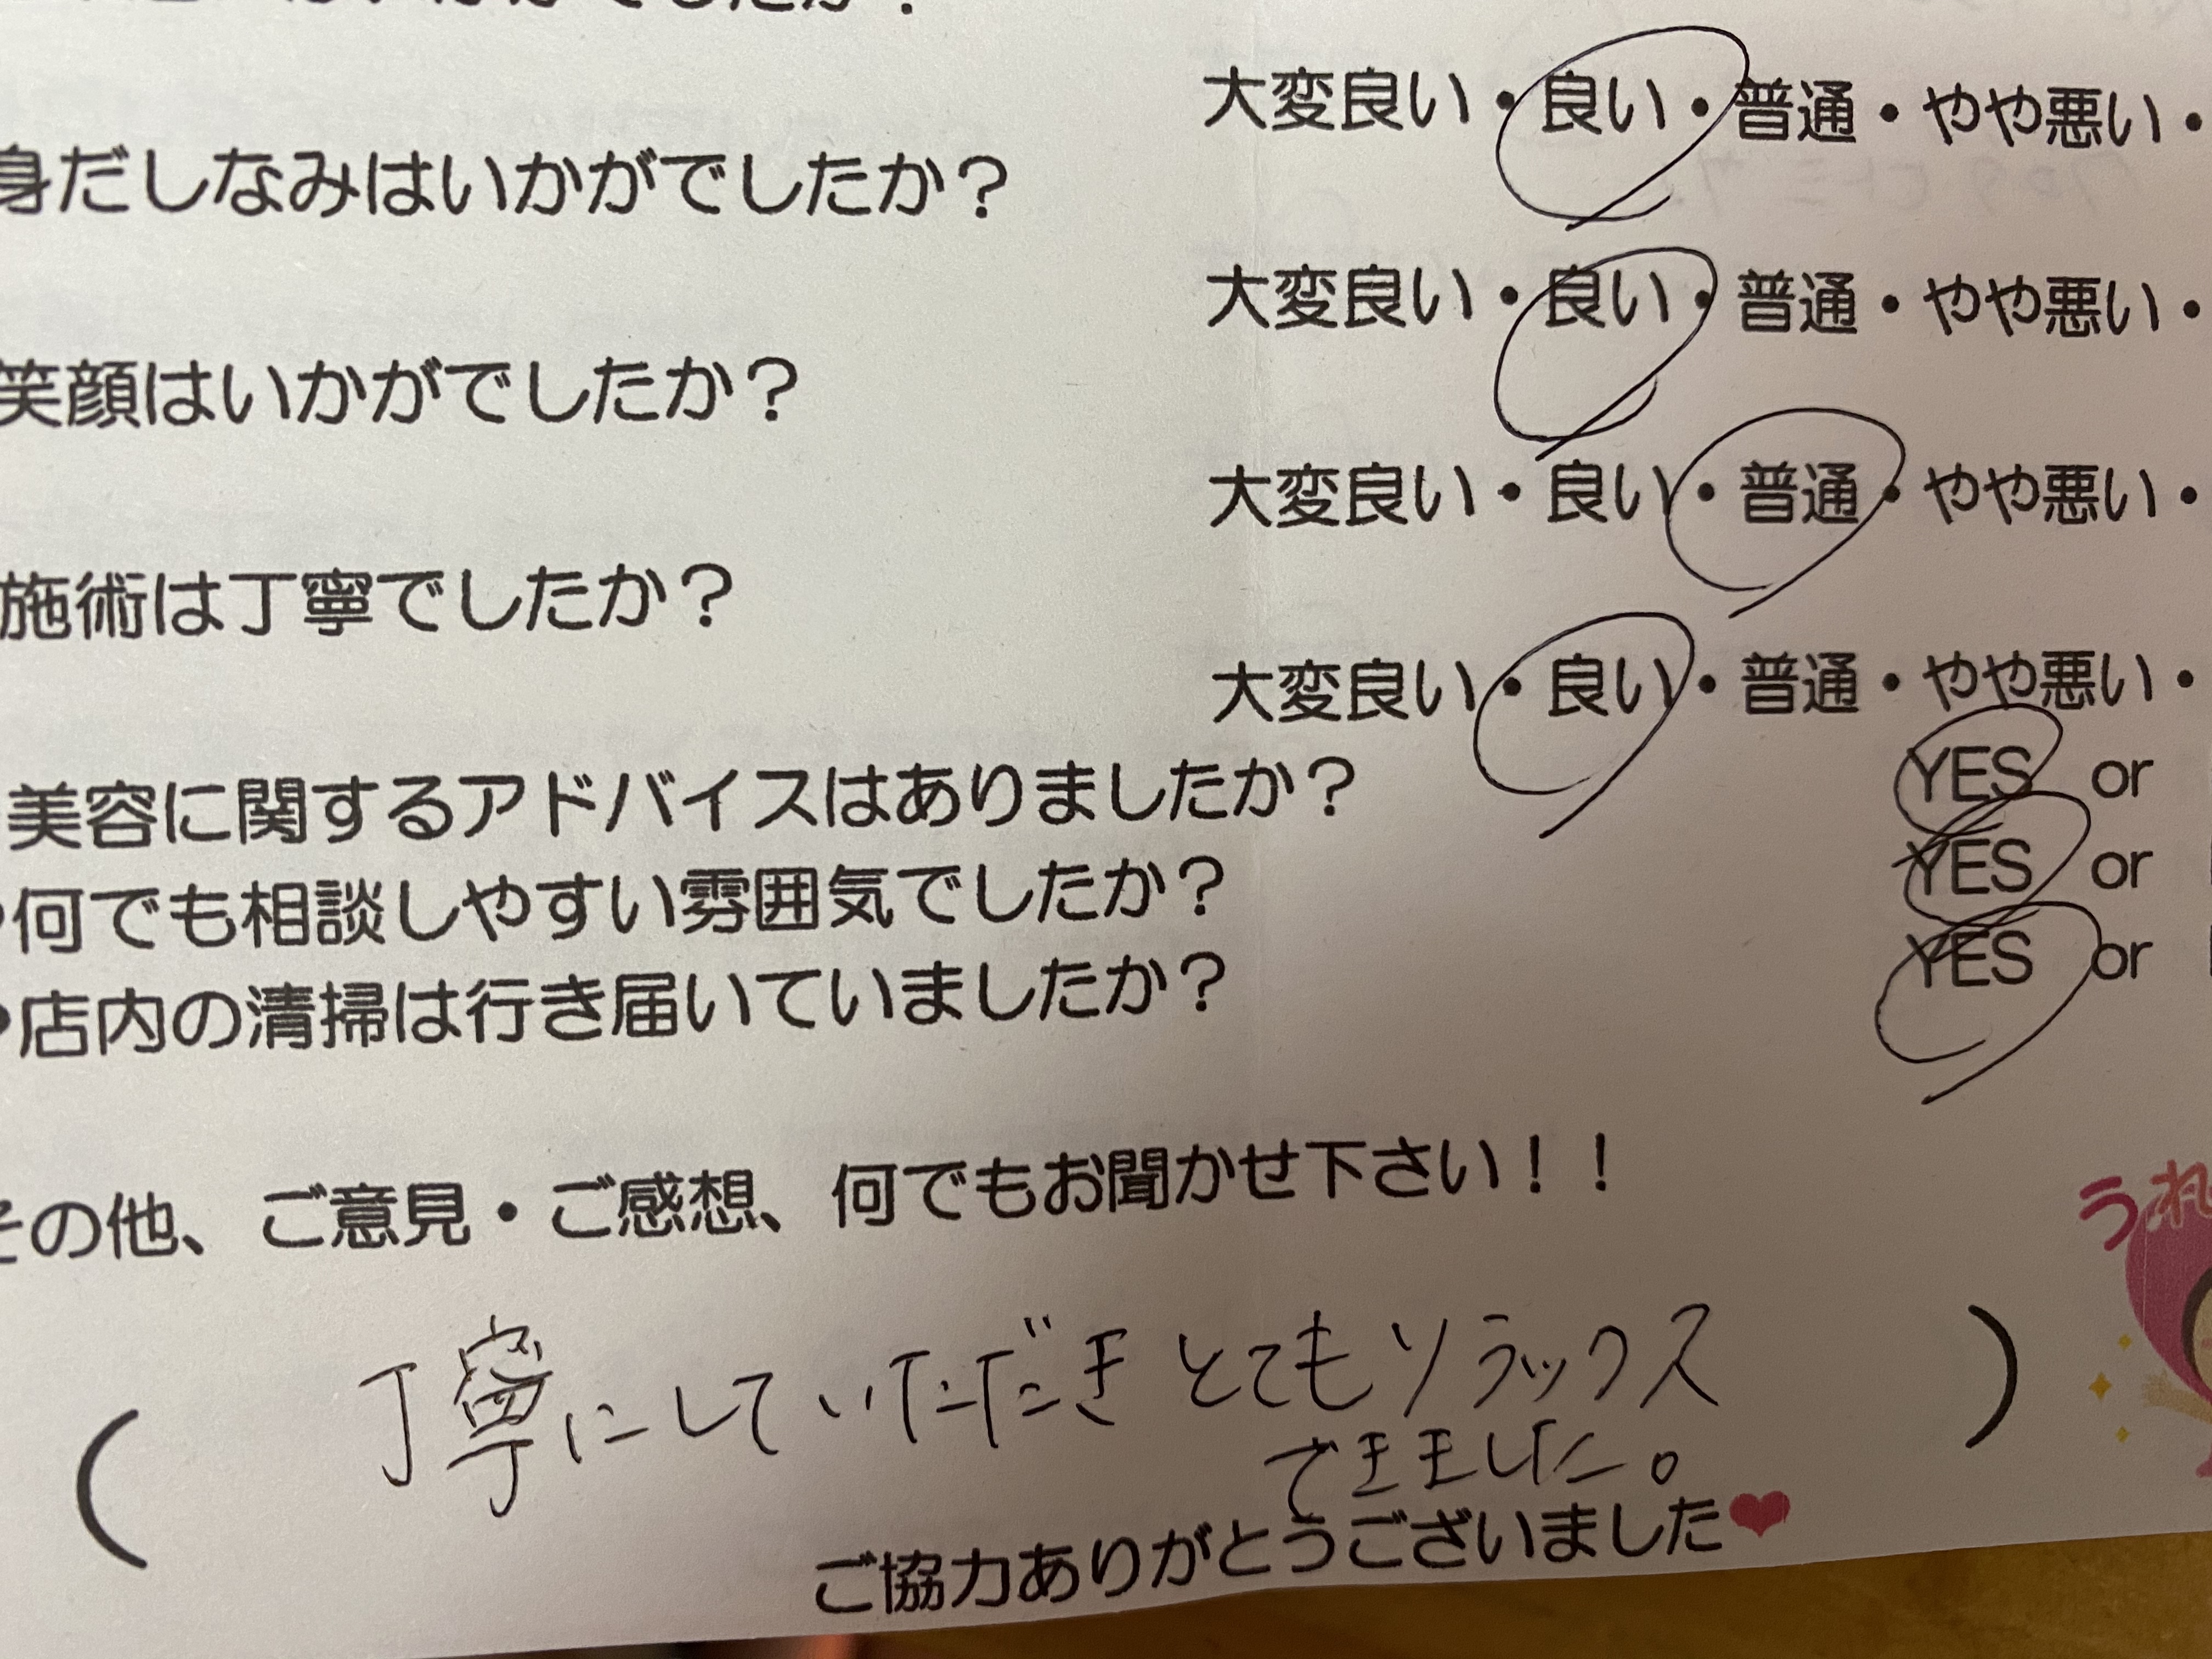 大変良い・良い・普通・やや悪い・
身だしなみはいかがでしたか？
大変良い・良い・普通・やや悪い・
笑顔はいかがでしたか？
大変良い・良い・普通・やや悪い・
施術は丁寧でしたか？
大変良い・良い・普通・やや悪い・
美容に関するアドバイスはありましたか？ YES or
何でも相談しやすい雰囲気でしたか？ YES or
店内の清掃は行き届いていましたか？ YES or
その他、ご意見・ご感想、何でもお聞かせ下さい！！
うれ
（丁寧にしていただきとてもリラックス）
できました。
ご協力ありがとうございました❤